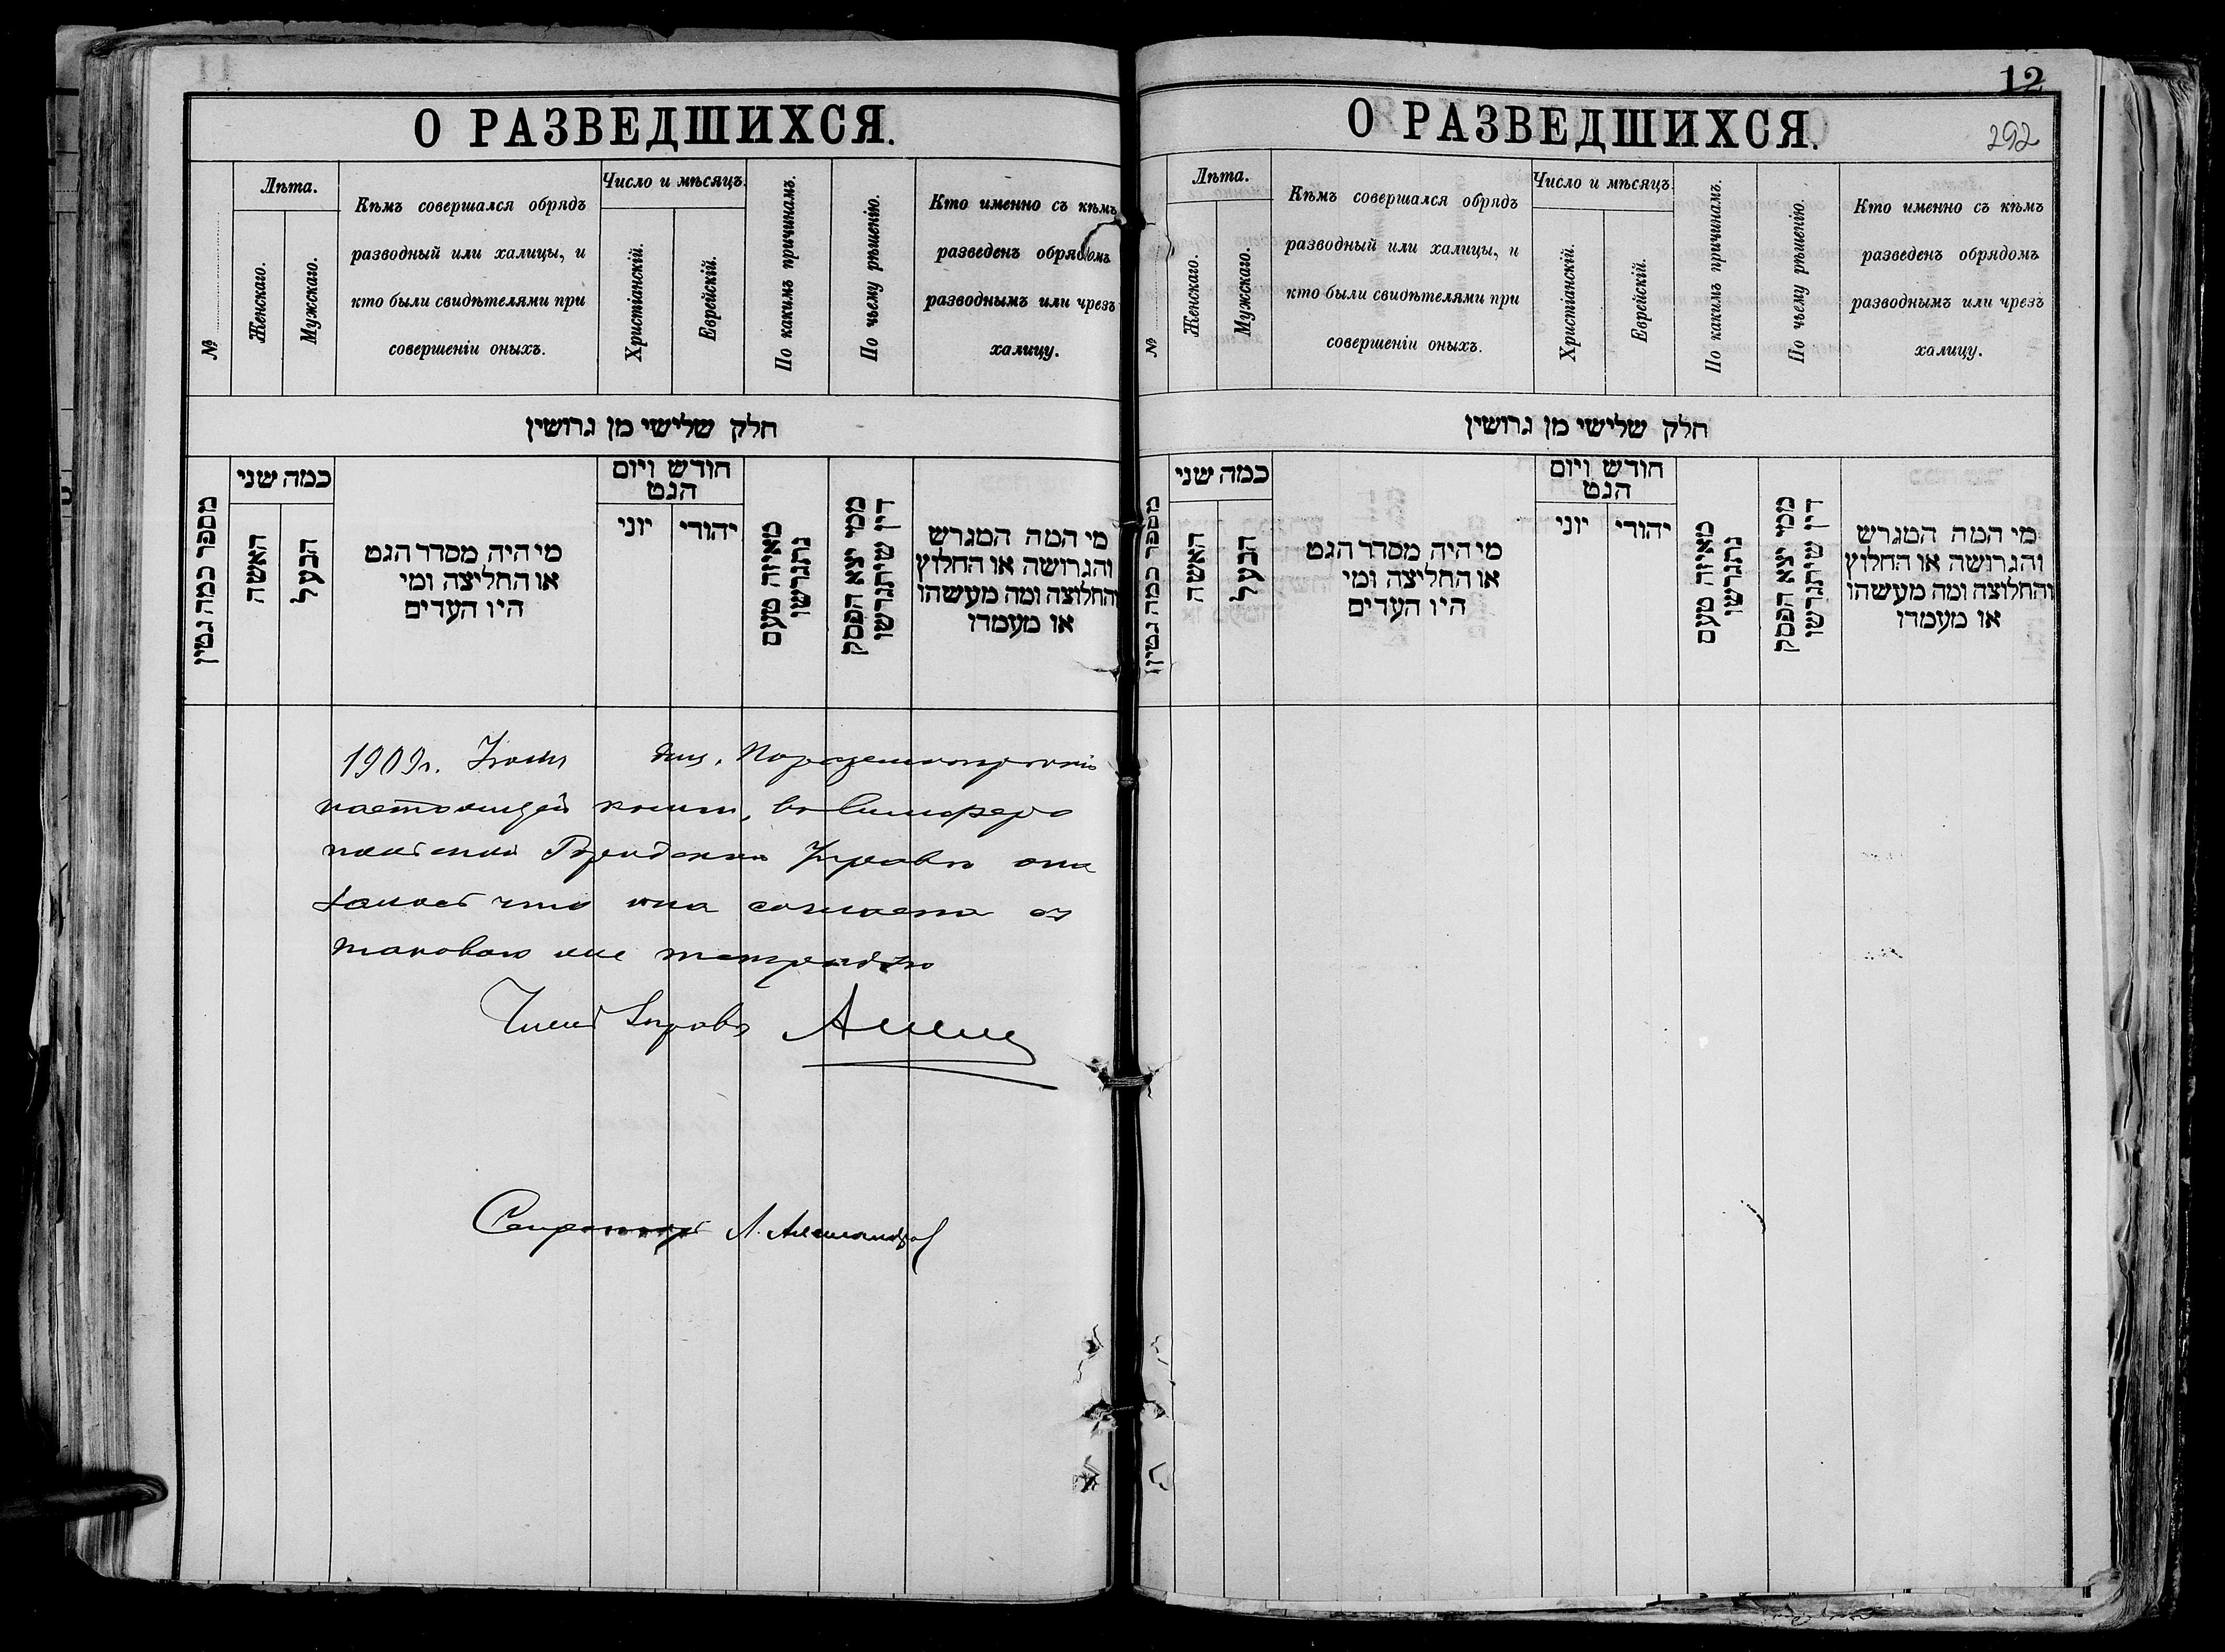 11
О РАЗВЕДШИХСЯ.
№
Лѣта.
Женскаго.
Мужскаго.
Кѣмъ совершался обрядъ
разводный или халицы, и
кто были свидѣтелями при
совершеніи оныхъ.
Число и мѣсяцъ.
Христіанскій.
Еврейскій.
По какимъ причинамъ.
По чьему рѣшенію.
Кто именно съ кѣмъ
разведенъ обрядомъ
разводнымъ или чрезъ
халицу.
חלק שלישי מן גרושין
מספר כמה גטין
כמה שני
האשה
הבעל
מי היה מסדר הגט
או החליצה ומי
היו העדים
חודש ויום
הגט
יוני
יהודי
מאיזה טעם
נתגרשו
ממי יצא הפסק
דין שיתגרשו
מי המה המגרש
והגרושה או החלוץ
והחלוצה ומה מעשהו
או מעמדו
1909г. Іюня дня,
настоящей книги, въ Симферо
польской Городской Управѣ ока
залось что она согласна съ
таковою же тетрадью
Членъ Управы
Секретарь Л. Александров
12
292
О РАЗВЕДШИХСЯ.
№
Лѣта.
Женскаго.
Мужскаго.
Кѣмъ совершался обрядъ
разводный или халицы, и
кто были свидѣтелями при
совершеніи оныхъ.
Число и мѣсяцъ.
Христіанскій.
Еврейскій.
По какимъ причинамъ.
По чьему рѣшенію.
Кто именно съ кѣмъ
разведенъ обрядомъ
разводнымъ или чрезъ
халицу.
חלק שלישי מן גרושין
מספר כמה גטין
כמה שני
האשה
הבעל
מי היה מסדר הגט
או החליצה ומי
היו העדים
חודש ויום
הגט
יוני
יהודי
מאיזה טעם
נתגרשו
ממי יצא הפסק
דין שיתגרשו
מי המה המגרש
והגרושה או החלוץ
והחלוצה ומה מעשהו
או מעמדו